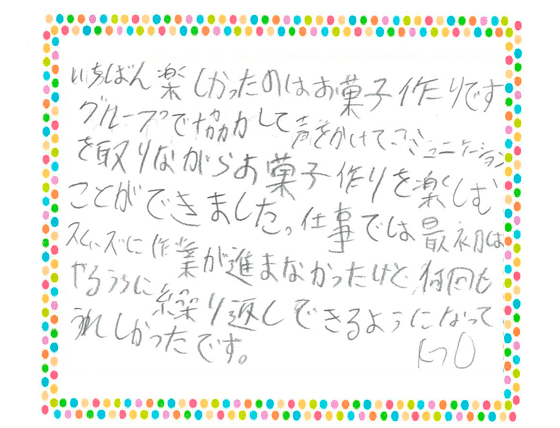 いちばん楽しかったのはお菓子作りです
グループで協力して声をかけてコミュニケーション
を取りながらお菓子作りを楽しむ
ことができました。仕事では最初は
スムーズに作業が進まなかったけど何回も
やるうちに繰り返しできるようになって
うれしかったです。